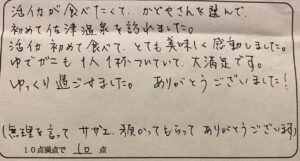 活イカが食べたくて、かどやさんを選んで、
初めて佐津温泉を訪れました。
活イカ初めて食べて、とても美味しく感動しました。
ゆでガニも1人1杯ついていて、大満足です。
ゆっくり過ごせました。 ありがとうございました!
(無理を言って サザエ 預かってもらって ありがとうございます)
10点満点で 10 点